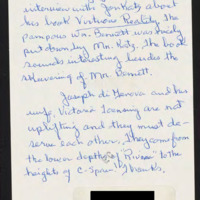 interview with Jon Katz about
his book Virtuous Reality. The
pompous Wm. Bennett was nicely
put down by Mr. Katz. The book
sounds interesting besides the
skewering of Mr. Bennett.
Joseph di Genova and his
wife, Victoria Toensing are not
uplifting and they must de-
serve each other. They come from
the lower depths of "Rivera" to the
heights of C-Span. Thanks,